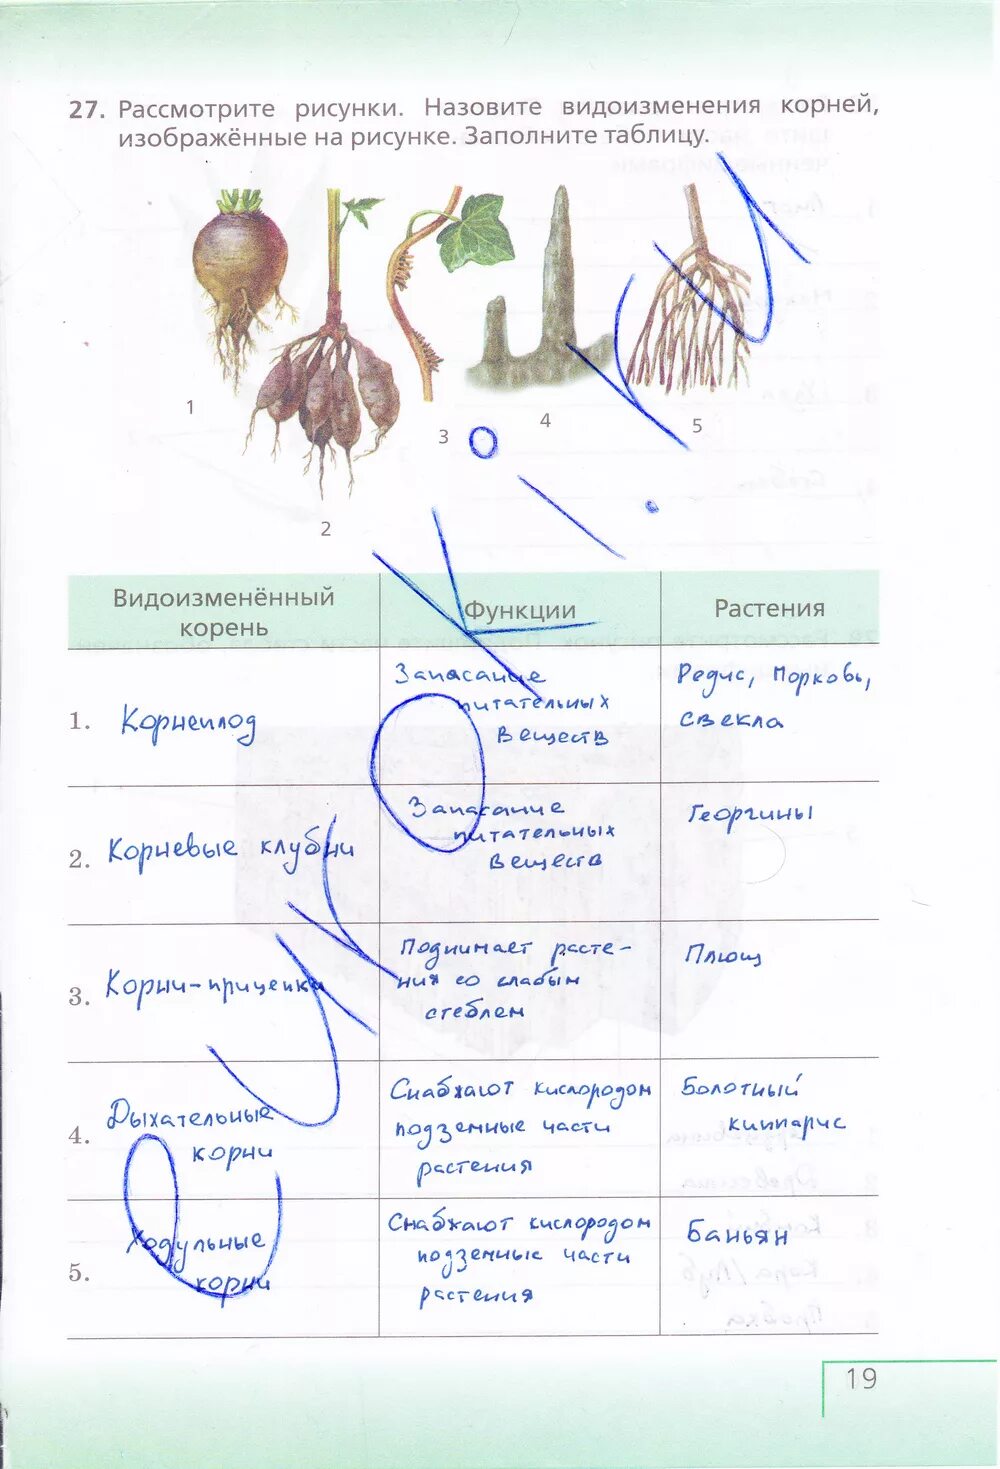 27. Рассмотрите рисунки. Назовите видоизменения корней,
изображённые на рисунке. Заполните таблицу.
1
2
3
4
5
Видоизменённый
корень
Функции
Растения
1. Корнеплод
Запасание
питательных
веществ
Редис, Морковь,
свекла
2. Корневые клубни
Запасание
питательных
веществ
Георгины
3. Корни-прицепки
Поднимает расте-
ния со слабым
стеблем
Плющ
4. Дыхательные
корни
Снабжают кислородом
подземные части
растения
Болотный
кипарис
5. Ходульные
корни
Снабжают кислородом
подземные части
растения
Баньян
19